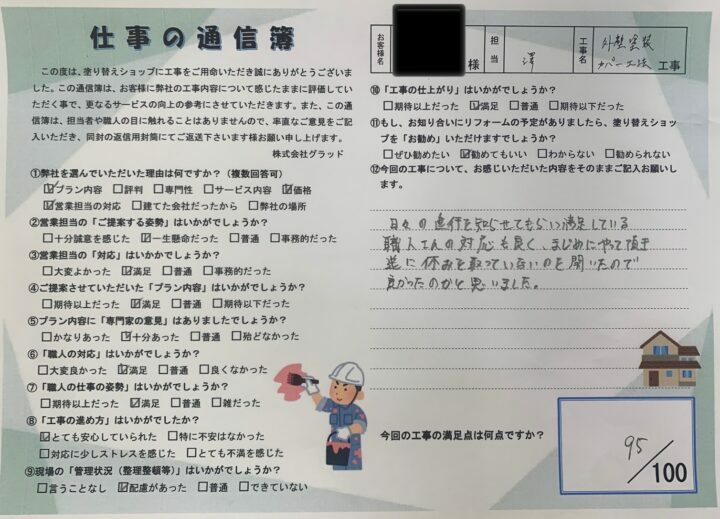 仕事の通信簿
この度は、塗り替えショップに工事をご用命いただき誠にありがとうございま
した。この通信簿は、お客様に弊社の工事内容について感じたままに評価してい
ただく事で、更なるサービスの向上の参考にさせていただきます。また、この通
信簿は、担当者や職人の目に触れることはありませんので、率直なご意見をご記
入いただき、同封の返信用封筒にてご返送下さいます様お願い申し上げます。
株式会社グラッド
①弊社を選んでいただいた理由は何ですか？（複数回答可）
☑プラン内容 □評判 □専門性 □サービス内容 ☑価格
☑営業担当の対応 □建てた会社だったから □弊社の場所
②営業担当の「ご提案する姿勢」はいかがでしょうか？
□十分誠意を感じた ☑一生懸命だった □普通 □事務的だった
③営業担当の「対応」はいかかでしょうか？
□大変よかった ☑満足 □普通 □事務的だった
④ご提案させていただいた「プラン内容」はいかがでしょうか？
□期待以上だった ☑満足 □普通 □期待以下だった
⑤プラン内容に「専門家の意見」はありましたでしょうか？
□かなりあった ☑十分あった □普通 □殆どなかった
⑥「職人の対応」はいかがでしょうか？
□大変良かった ☑満足 □普通 □良くなかった
⑦「職人の仕事の姿勢」はいかがでしょうか？
□期待以上だった ☑満足 □普通 □雑だった
⑧「工事の進め方」はいかがでしたか？
☑とても安心していられた □特に不安はなかった
□対応に少しストレスを感じた □とても不満を感じた
⑨現場の「管理状況（整理整頓等）」はいかがでしょうか？
□言うことなし ☑配慮があった □普通 □できていない
お客様名 様 担当 澤 工事名 外壁塗装 カバー工法 工事
⑩「工事の仕上がり」はいかがでしょうか？
□期待以上だった ☑満足 □普通 □期待以下だった
⑪もし、お知り合いにリフォームの予定がありましたら、塗り替えショッ
プを「お勧め」いただけますでしょうか？
□ぜひ勧めたい ☑勧めてもいい □わからない □勧められない
⑫今回の工事について、お感じいただいた内容をそのままご記入お願いし
ます。
日々の進行を知らせてもらい満足している
職人さんの対応も良く、まじめにやって頂き
逆に休みを取っていないのを聞いたので
良かったのかと思いました。
今回の工事の満足点は何点ですか？
95/100